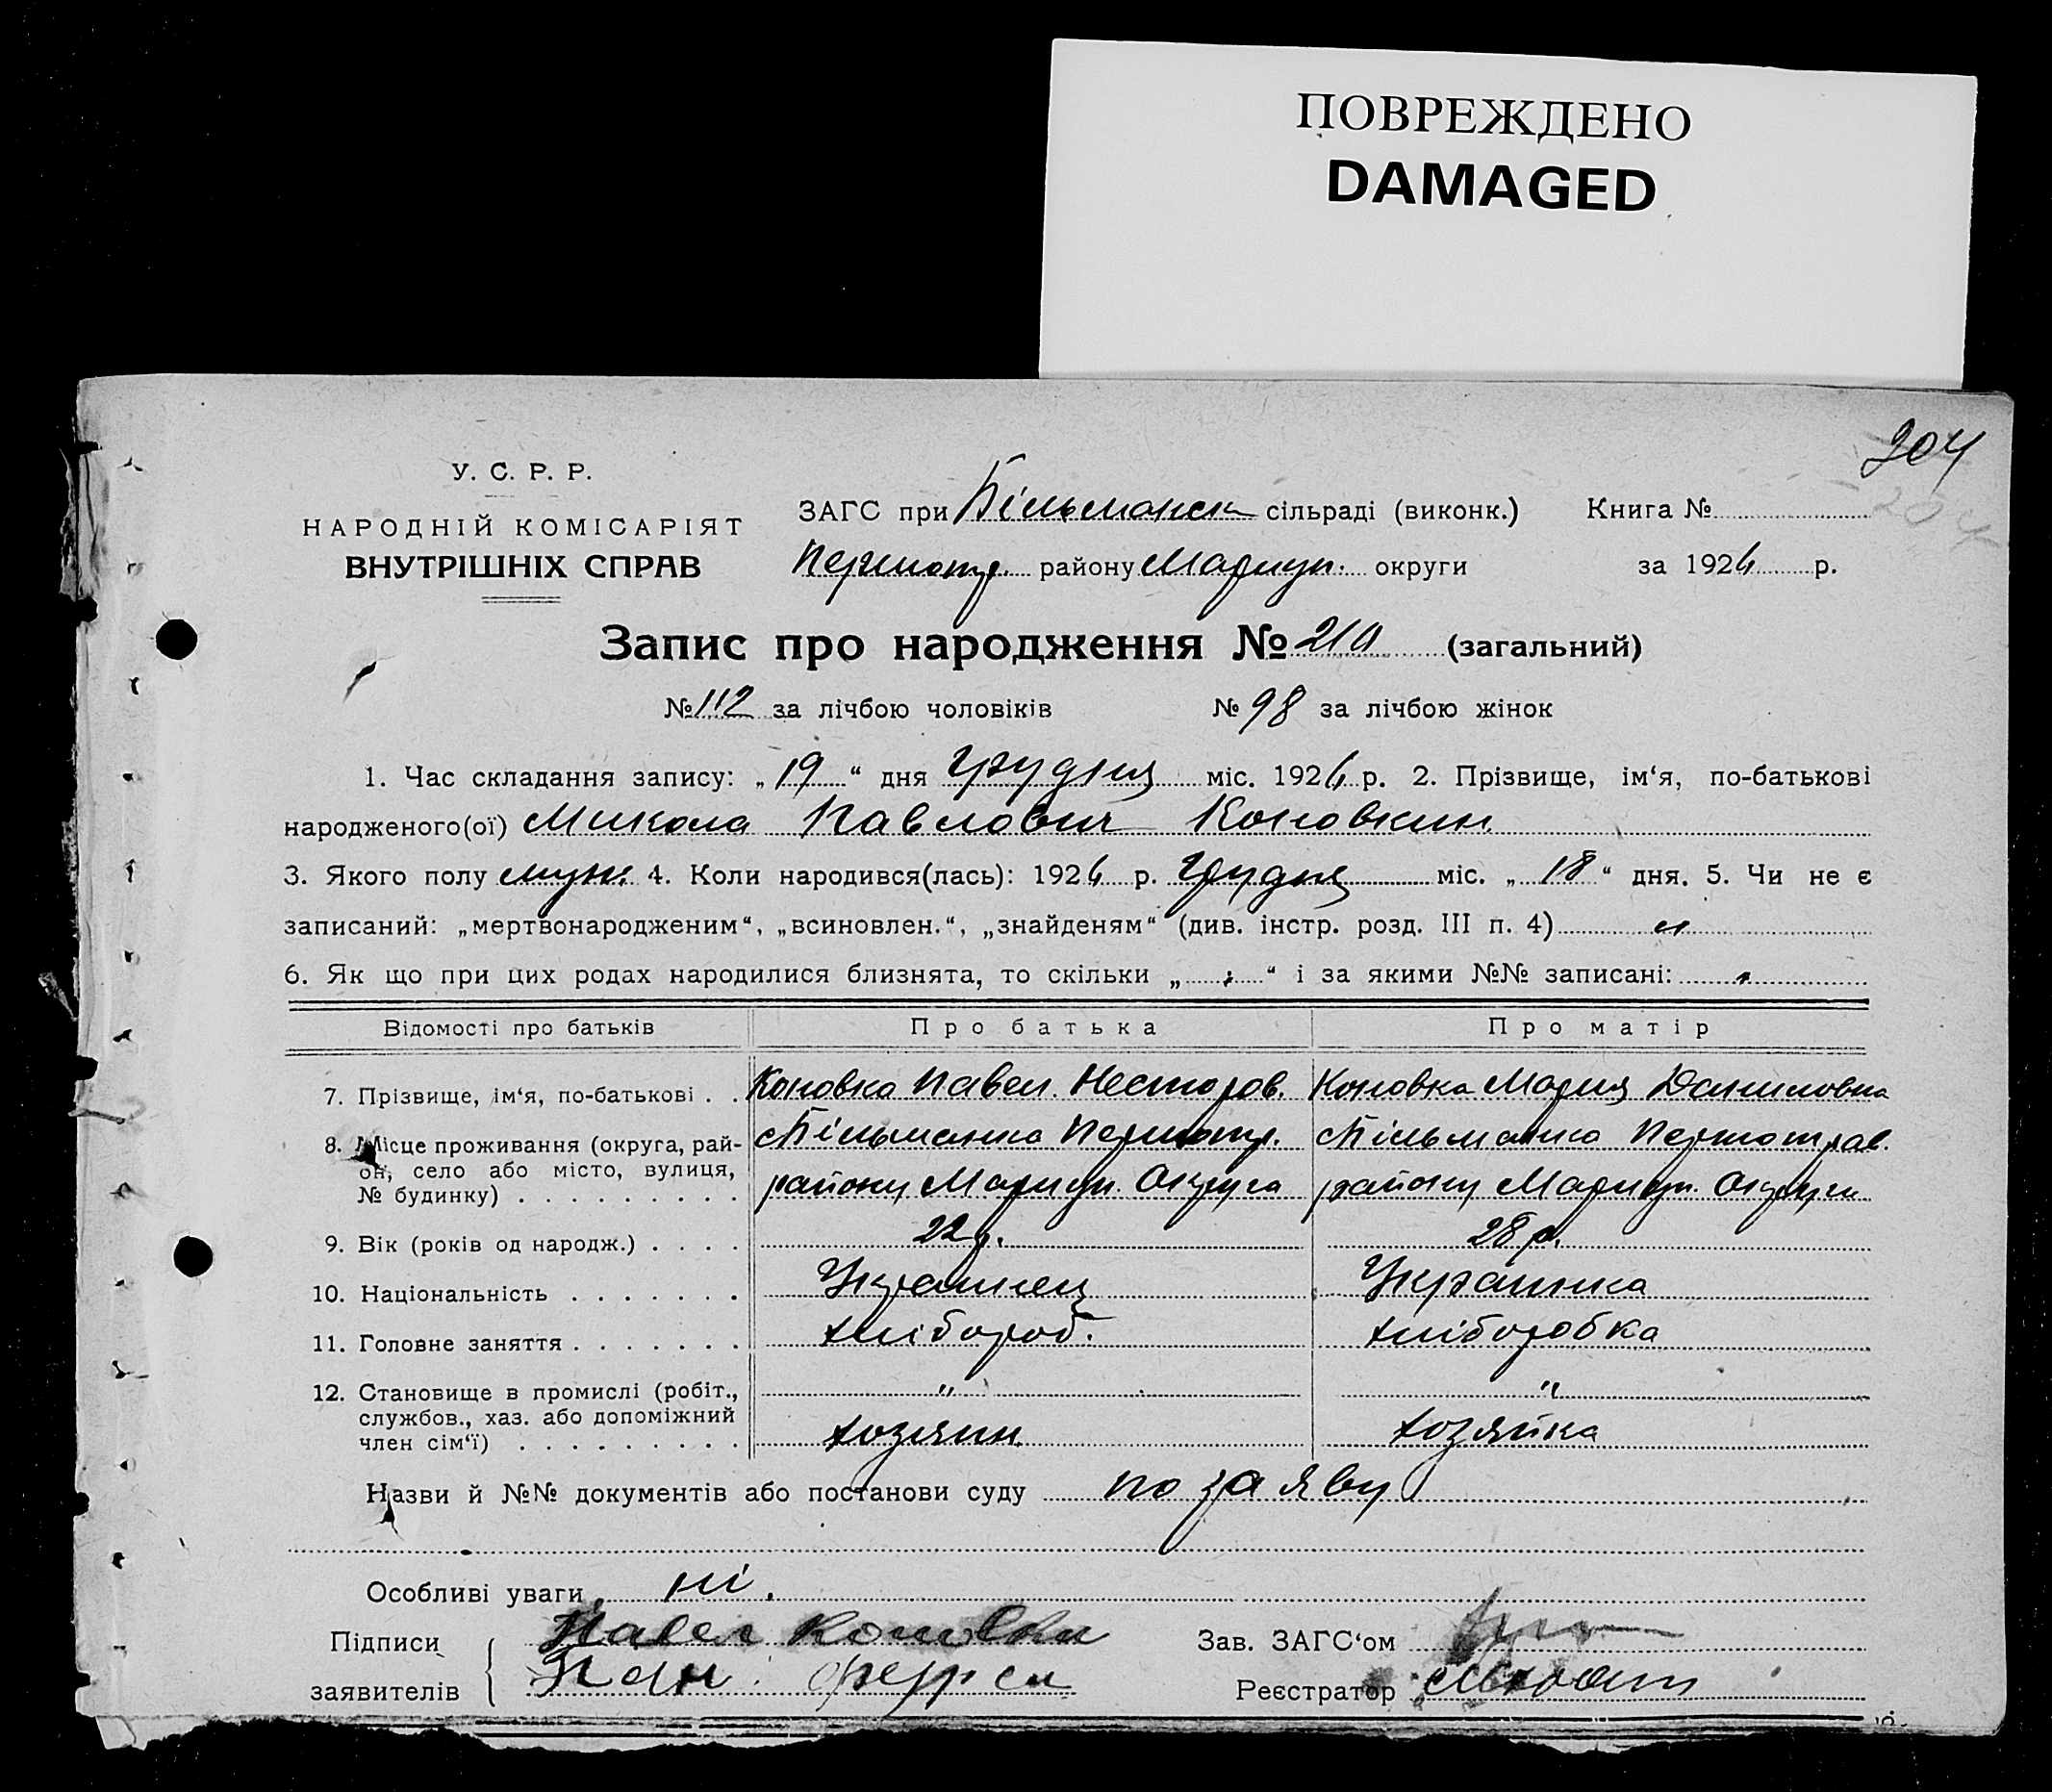 ПОВРЕЖДЕНО
DAMAGED
204
204
У. С. Р. Р.
НАРОДНІЙ КОМІСАРІЯТ
ВНУТРІШНІХ СПРАВ
ЗАГС при Більманск сільраді (виконк.) Книга №
Першотр. району Мариуп. округи за 1926 р.
Запис про народження № 210 (загальний)
№ 112 за лічбою чоловіків № 98 за лічбою жінок
1. Час складання запису: „ 19 “ дня Грудня міс. 1926 р. 2. Прізвище, ім‘я, по-батькові
народженого(ої) Микола Павлович Коновкин
3. Якого полу муж. 4. Коли народився(лась): 1926 р. Грудня міс. „ 18 “ дня. 5. Чи не є
записаний: „мертвонародженим“, „всиновлен.“, „знайденям“ (див. інстр. розд. III п. 4) „
6. Як що при цих родах народилися близнята, то скільки „ “ і за якими №№ записані:
Відомості про батьків Про батька Про матір
7. Прізвище, ім‘я, по-батькові . . Коновка Павел. Несторов. Коновка Мария Даниловна
8. Місце проживання (округа, рай- с Більманка Першотр. с Більманка Першотрав.
он, село або місто, вулиця,
№ будинку) . . . . . . . . . району Мариуп. Округа району Мариуп. Округи
9. Вік (років од народж.) . . . . 22 р. 28 р.
10. Національність . . . . . . . Украинец Украинка
11. Головне заняття . . . . . . . хлібороб. хліборобка
12. Становище в промислі (робіт., „ „
службов., хаз. або допоміжний
член сім‘ї) . . . . . . . . . хозяин. хозяйка
Назви й №№ документів або постанови суду по заяву
Особливі уваги ні.
Підписи Павел Коновка Зав. ЗАГС‘ом
заявителів Реєстратор